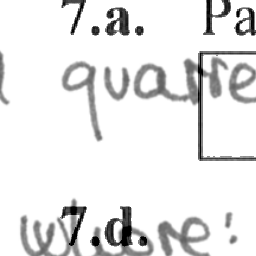 7.a. Pa
quarre
7.d.
whore: